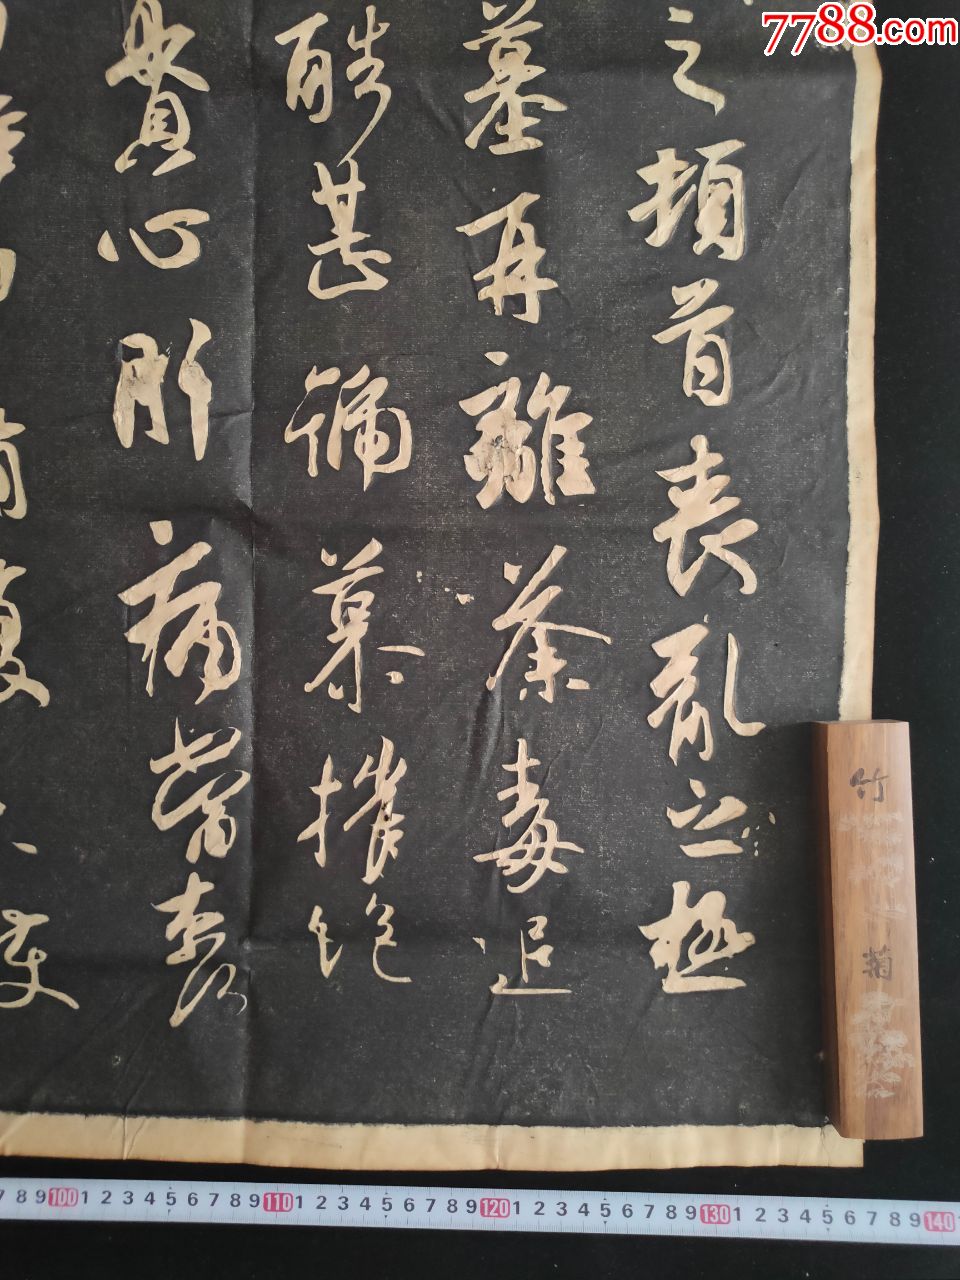 7788.com
之頓首喪亂之極
墓再離荼毒追
酷甚號慕摧絶
貫心肝痛當奈何
脩復未獲
竹
菊
7 8 9 100 1 2 3 4 5 6 7 8 9 110 1 2 3 4 5 6 7 8 9 120 1 2 3 4 5 6 7 8 9 130 1 2 3 4 5 6 7 8 9 140